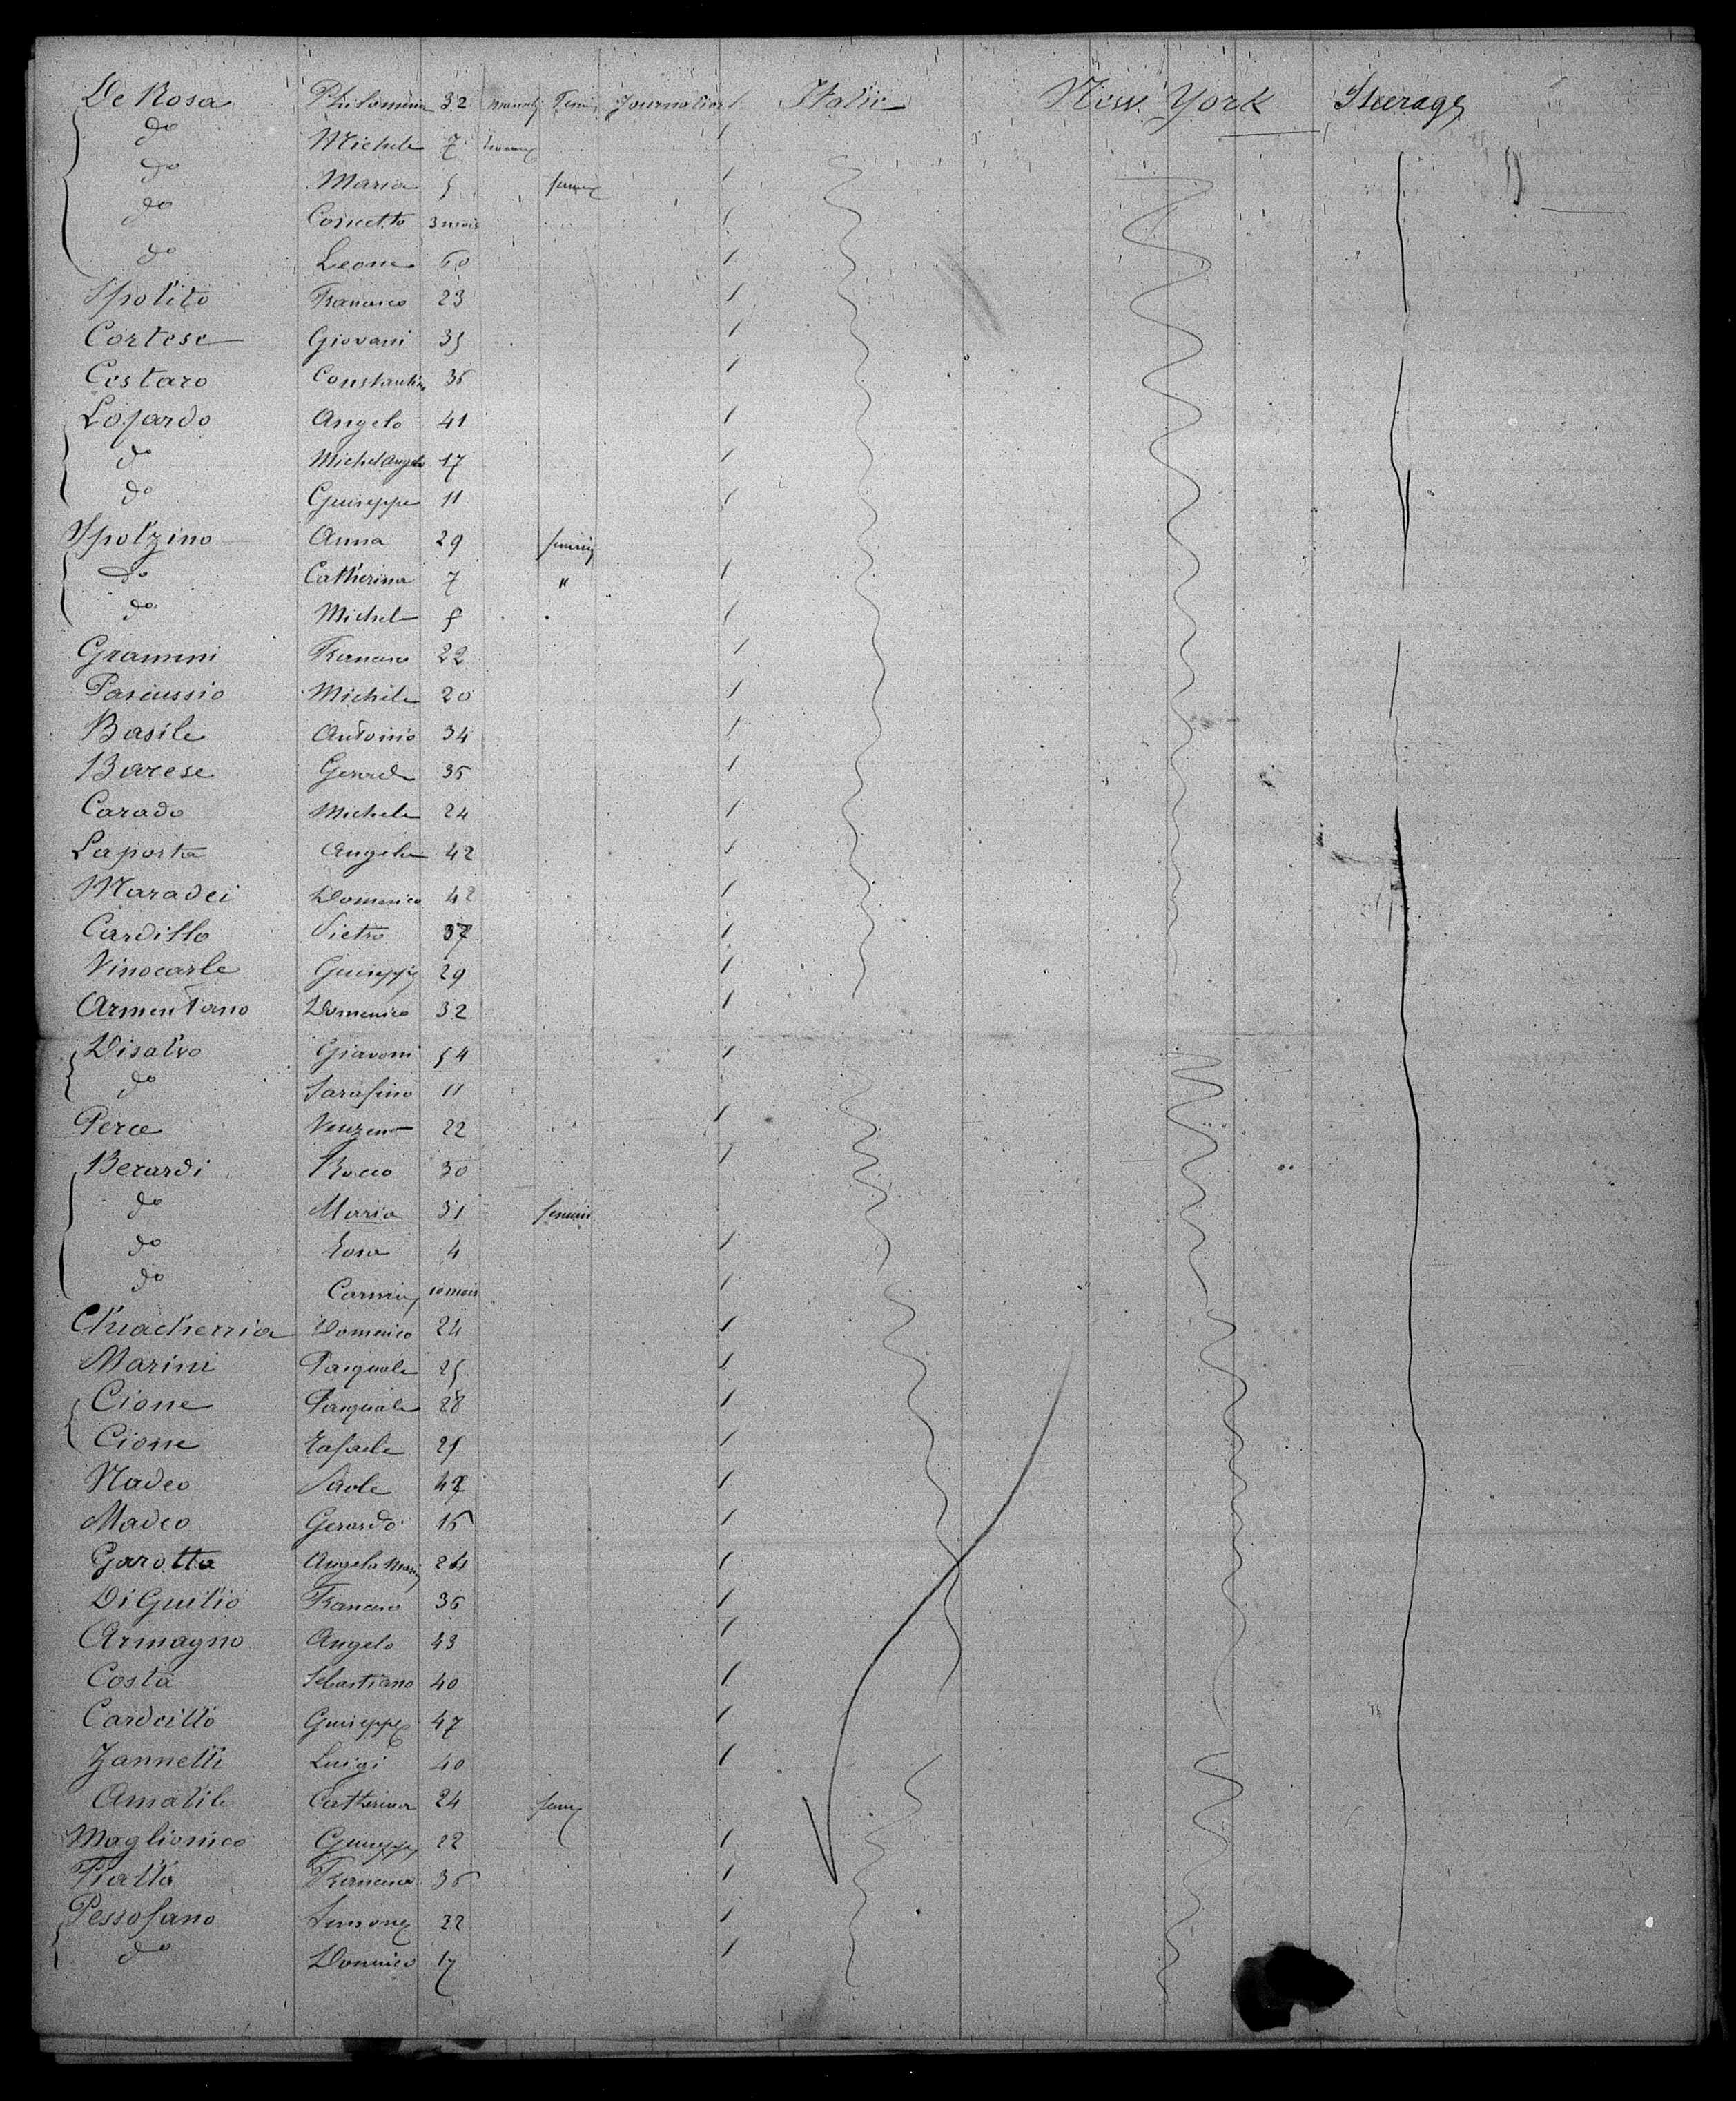 De Rosa Philomena 32 Femin Journalier / Italie New York Steerage
do Michele 7 /
do Maria 5 femin /
do Concetto 3 mois /
do Leone 60 /
Spolito Francesco 23 /
Cortese Giovani 35 /
Costaro Constantino 36 /
Lopardo Angelo 41 /
do Michelangelo 17 /
do Guiseppe 11 /
Spolzino Anna 29 femin
do Catherina 7 " /
do Michel 5 /
Gramini Francesco 22 /
Michele 20 /
Basile Antonio 34 /
Barese Gerard 36 /
Carado Michele 24 /
Laporta Angelo 42 /
Maradei Domenico 42 /
Cardillo Pietro 37 /
Vinocarle Guiseppe 29 /
Armentano Domenico 32 /
Disalvo Giavoni 54 /
do Sarafino 11
Perce 22 /
Berardi Rocco 30 /
do Maria 31 femin
do Rosa 4 /
do 10 mois /
Domenico 24 /
Marini Pasquale 25 /
Cione Pasquale 28 /
Cione Rafaele 25 /
Madeo Paole /
Madeo Gerardo 16 /
Garotta Angelo Maria 24 /
DiGuilio Francesco 36 /
Armagno Angelo 43 /
Costa Sebastiano 40 /
Cardcillo Guiseppe 47 /
Zannetti Luigi 40 /
Amatile Catherina 24 fem
Maglionico Guiseppe 22 /
Francesco 36 /
Pessofano Simone 22 /
do Dominico 17 /